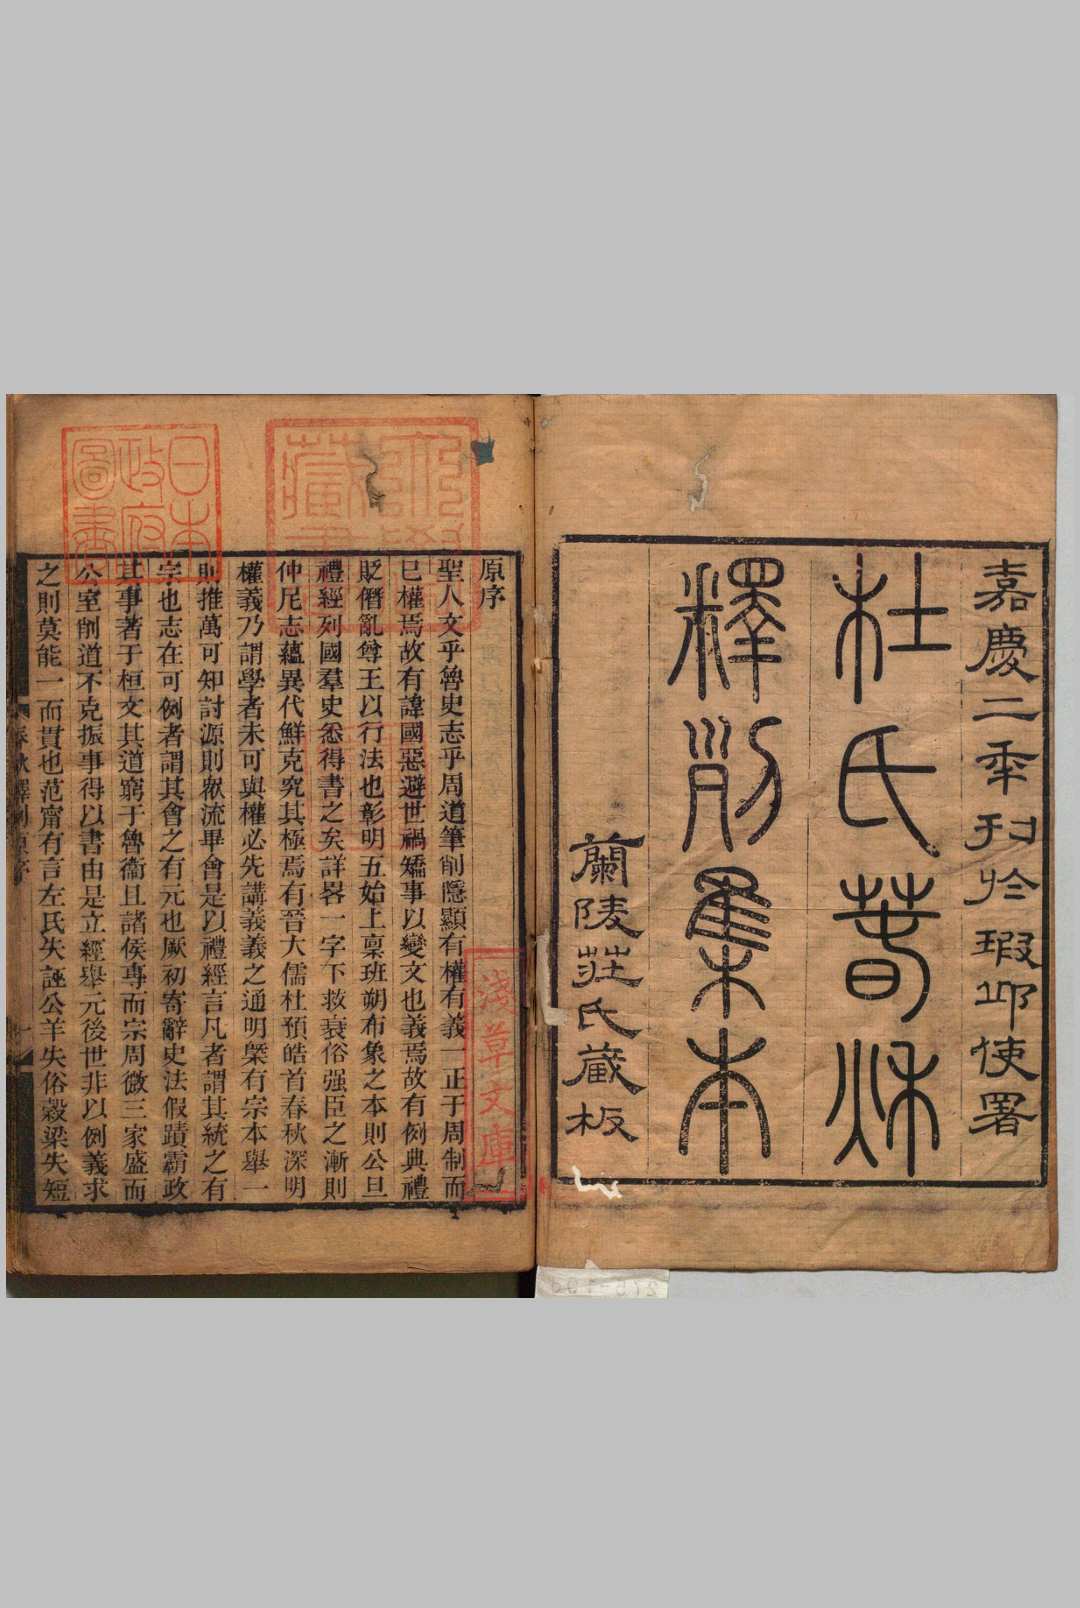 嘉慶二年刊於瑕邱使署
杜氏春秋
釋例集本
蘭陵莊氏藏板
原序
聖人文乎魯史志乎周道筆削隱顯有權有義一正于周制而
已權焉故有諱國惡避世禍矯事以變文也義焉故有例典禮
貶僭亂尊王以行法也彰明五始上稟班朔布象之本則公旦
禮經列國羣史悉得書之矣詳畧一字下救衰俗强臣之漸則
仲尼志蘊異代鮮克究其極焉有晉大儒杜預皓首春秋深明
權義乃謂學者未可與權必先講義義之通明槩有宗本舉一
則推萬可知討源則衆流畢會是以禮經言凡者謂其統之有
宗也志在可例者謂其會之有元也厥初寄辭史法假蹟霸政
其事著于桓文其道窮于魯衞且諸侯專而宗周微三家盛而
公室削道不克振事得以書由是立經舉元後世非以例義求
之則莫能一而貫也范甯有言左氏失誣公羊失俗穀梁失短
春秋釋例原序
一
日本
政府
圖書
淺草文庫